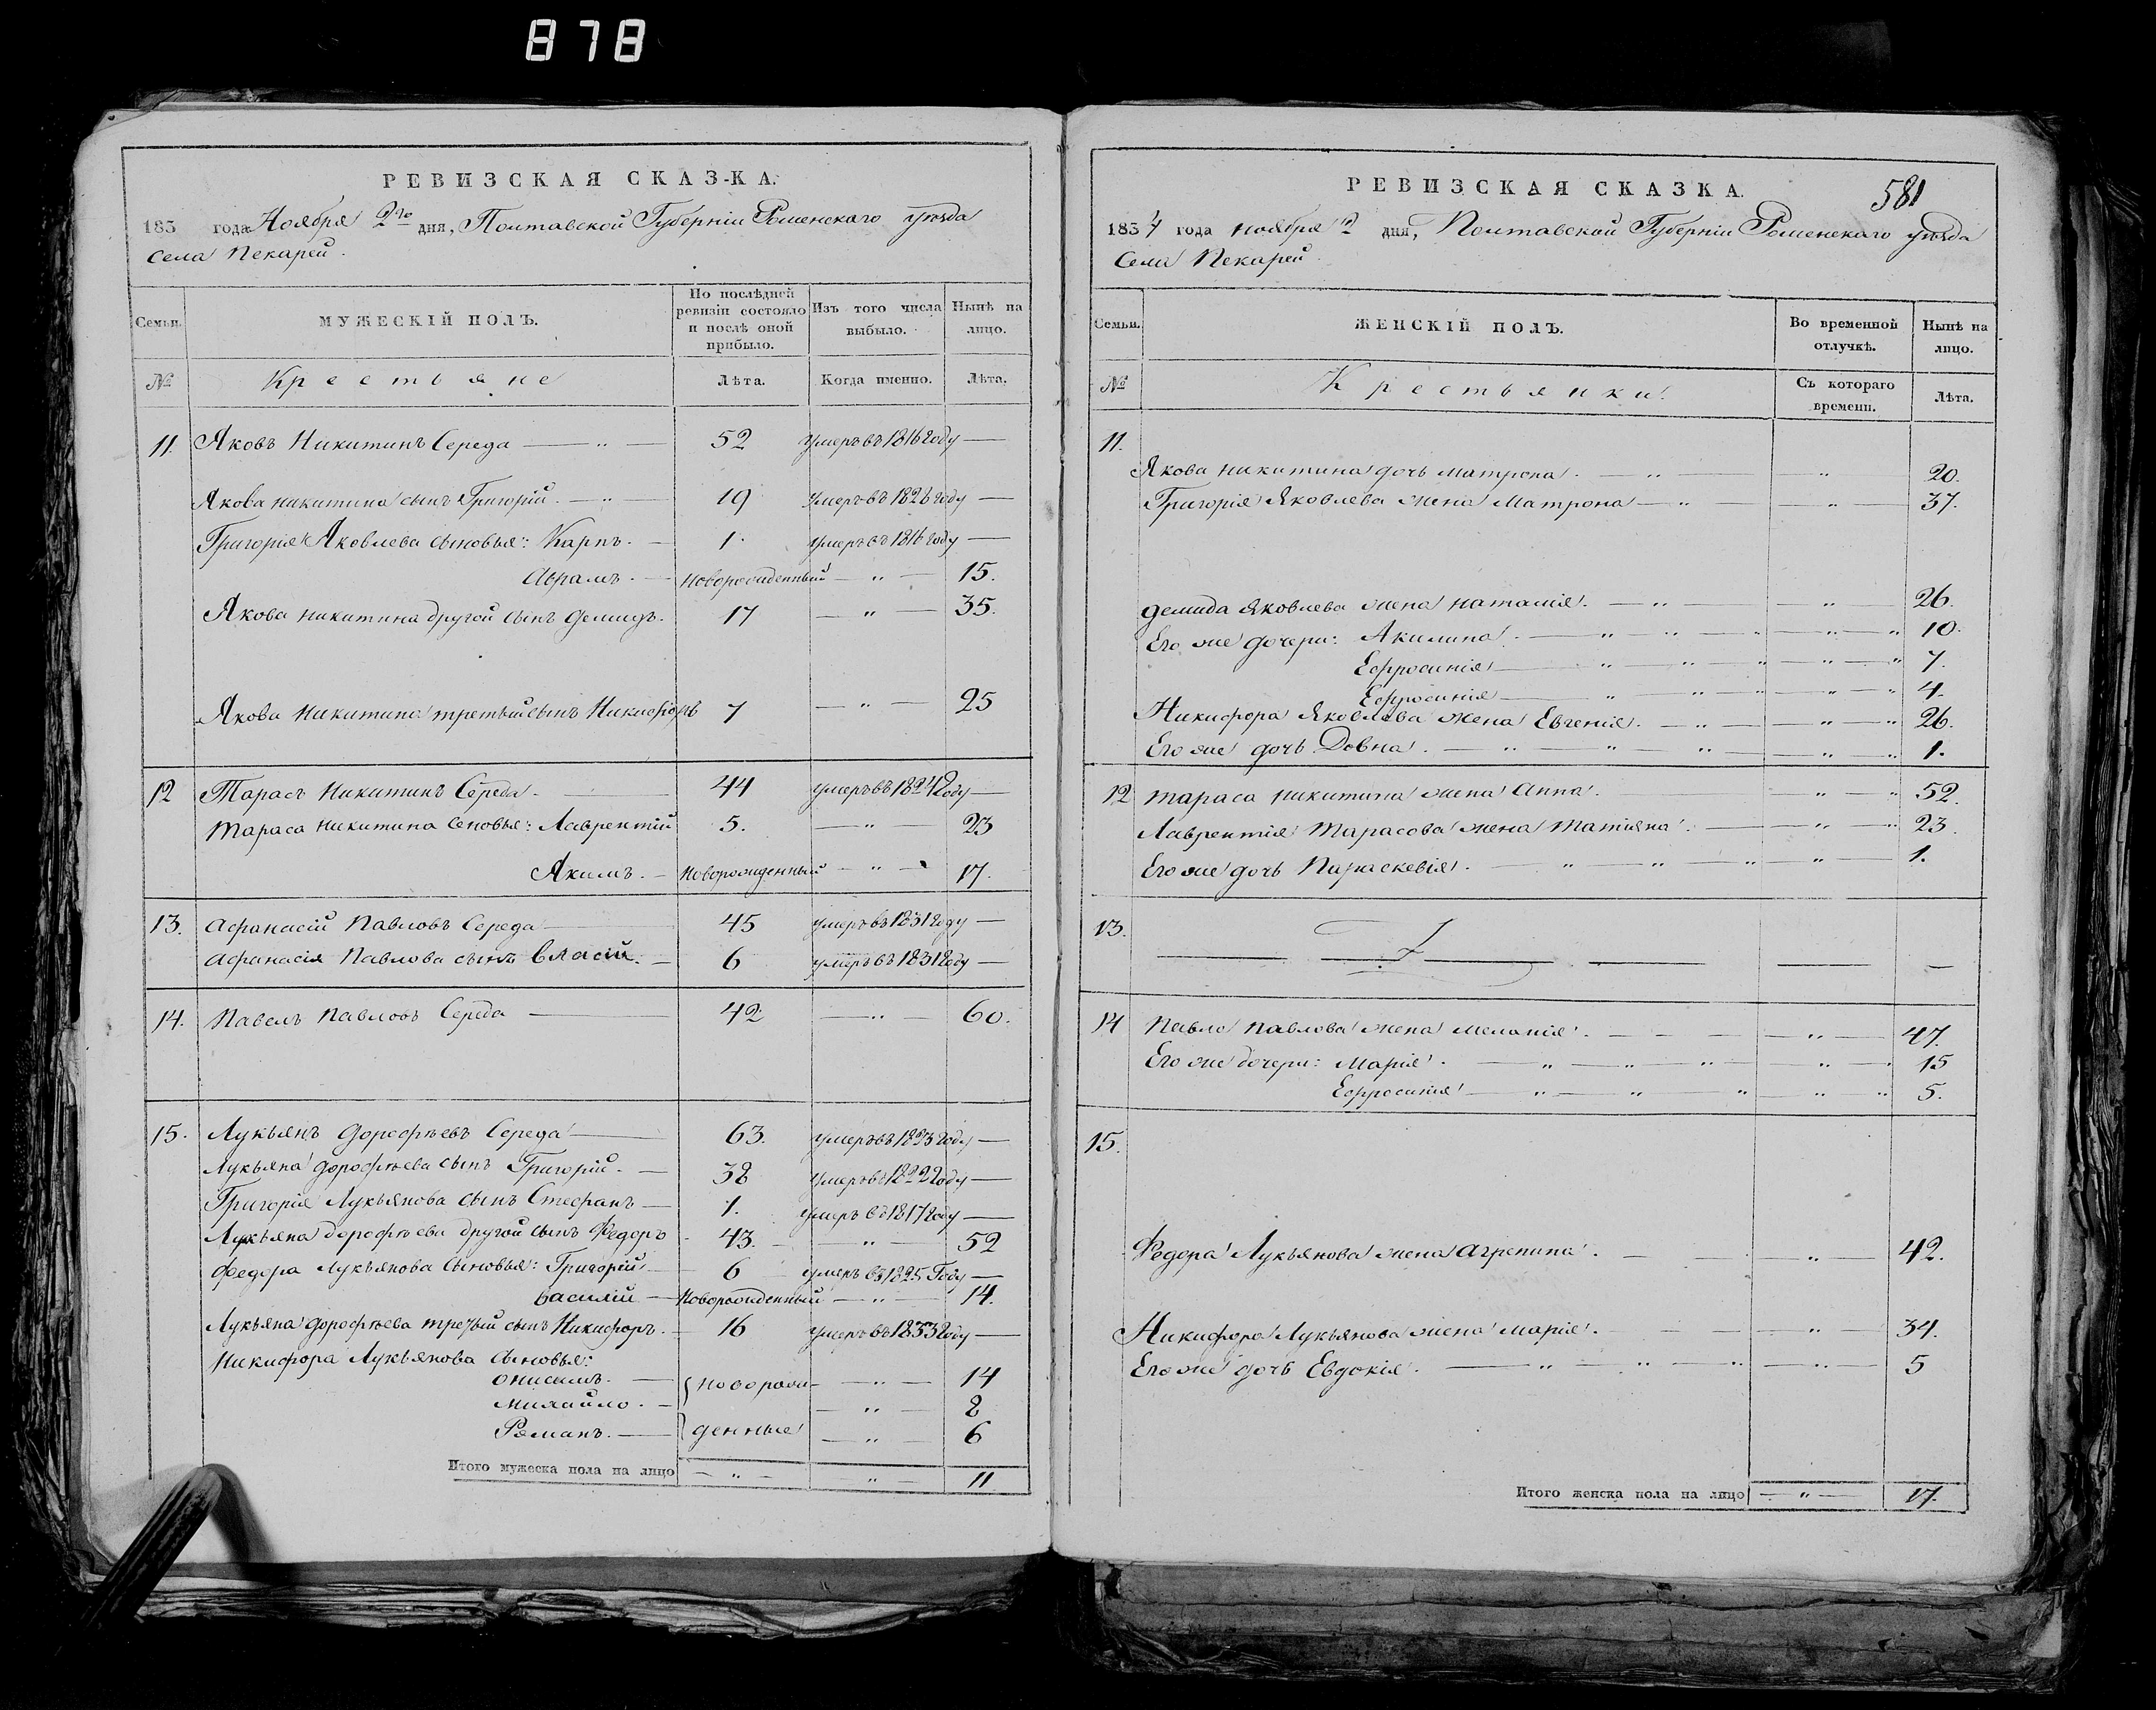 878
РЕВИЗСКАЯ СКАЗ-КА.
183 года Ноября 2го дня, Полтавской Губерніи Роменскаго уѣзда
Села Пекарей.
Семьи. МУЖЕСКІЙ ПОЛЪ. По послѣдней ревизіи состояло и послѣ оной прибыло. Изъ того числа выбыло. Нынѣ на лицо.
№ Крестьяне Лѣта. Когда именно. Лѣта.
11. Яковъ Никитинъ Середа — „ — 52 умеръ въ 1816 году —
Якова Никитина сынъ Григорій. — „ — 19 умеръ въ 1826 году —
Григорія Яковлева сыновья: Карпъ. — 1. умеръ въ 1816 году —
Абрамъ. — новорожденный — „ — 15.
Якова Никитина другой сынъ Демидъ. 17 — „ — 35.
Якова Никитина третьый сынъ Никифоръ 7 — „ — 25
12 Тарасъ Никитинъ Середа. — 44 умеръ въ 1824 году —
Тараса Никитина сеновья: Лаврентій 5. — „ 23
Якимъ. — новорожденный — „ — 17.
13. Афанасій Павловъ Середа — 45 умеръ въ 1831 году —
Афанасія Павлова сынъ Власій. — 6 умеръ въ 1831 году —
14. Павелъ Павловъ Середа — 42 — „ — 60.
15. Лукьянъ Дорофѣевъ Середа — 63. умеръ въ 1823 году —
Лукьяна Дорофѣева сынъ Григорій. — 38 умеръ въ 1822 году —
Григорія Лукьянова сынъ Стефанъ — 1. умеръ въ 1817 году —
Лукьяна Дорофѣева другой сынъ Федоръ - 43. — „ — 52
Федора Лукьянова сыновья: Григорій — 6 умеръ въ 1825 Году —
Василій — новорожденный — „ — 14.
Лукьяна Дорофѣева третьый сынъ Никифоръ. — 16 умеръ въ 1833 году —
Никифора Лукьянова сыновья:
Онисимъ. — новорож- — „ — 14
Михайло. — — „ — 8
Романъ. — денные — „ — 6
Итого мужеска пола на лицо — „ — — „ — 11
РЕВИЗСКАЯ СКАЗКА. 581
1834 года ноября 2 дня, Полтавской Губерніи Роменскаго уѣзда
Села Пекарей.
Семьи. ЖЕНСКІЙ ПОЛЪ. Во временной отлучкѣ. Нынѣ на лицо.
№ Крестьянки. Съ котораго времени. Лѣта.
11.
Якова Никитина дочь Матрона. — „ — „ — 20.
Григорія Яковлева жена Матрона — „ — — „ — 37.
Демида Яковлева жена Наталія. — „ — — „ — 26.
Его же дочери: Акилина. — „ — „ — „ — „ — „ 10.
Ефросинія — „ — „ — „ — „ — „ 7.
Ефросинія — „ — „ — „ — „ — „ 4.
Никифора Яковлева жена Евгенія. — „ — — „ — „ 26.
Его же дочь Довна. — „ — „ — „ — „ — „ 1.
12 Тараса Никитина жена Анна. — „ — „ 52.
Лаврентія Тарасова жена Татіяна. — „ — „ 23.
Его же дочь Параскевія. — „ — „ — „ — „ — 1.
13. — — — — —
14 Павло Павлова жена Меланія. — — — — „ — 47.
Его же дочери: Марія. — „ — „ — „ — „ — 15
Ефросинія — „ — „ — „ — „ — „ 5.
15.
Федора Лукьянова жена Агрепина. — „ — 42.
Никифора Лукьянова жена Марія. — — — „ — 34.
Его же дочь Евдокія. — „ — „ — „ — „ — 5
Итого женска пола на лицо — „ — 17.